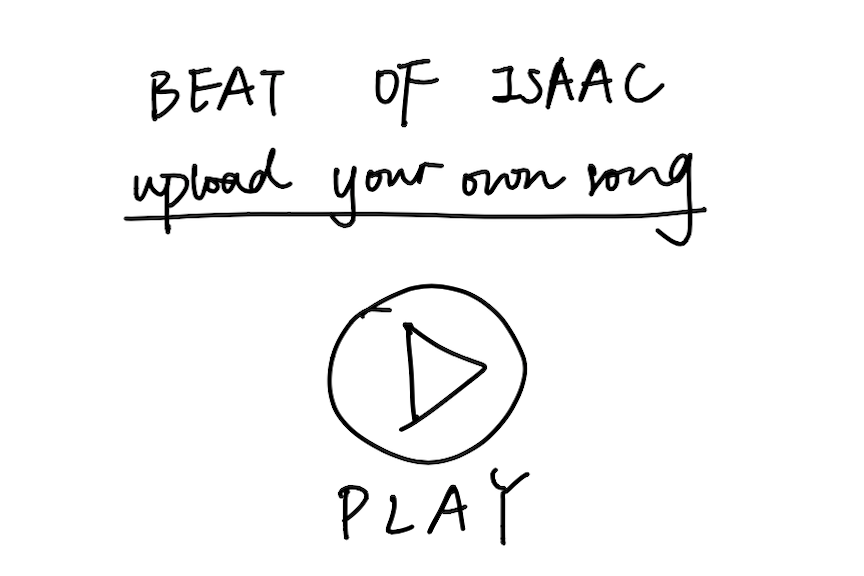 BEAT OF ISAAC
upload your own song
PLAY